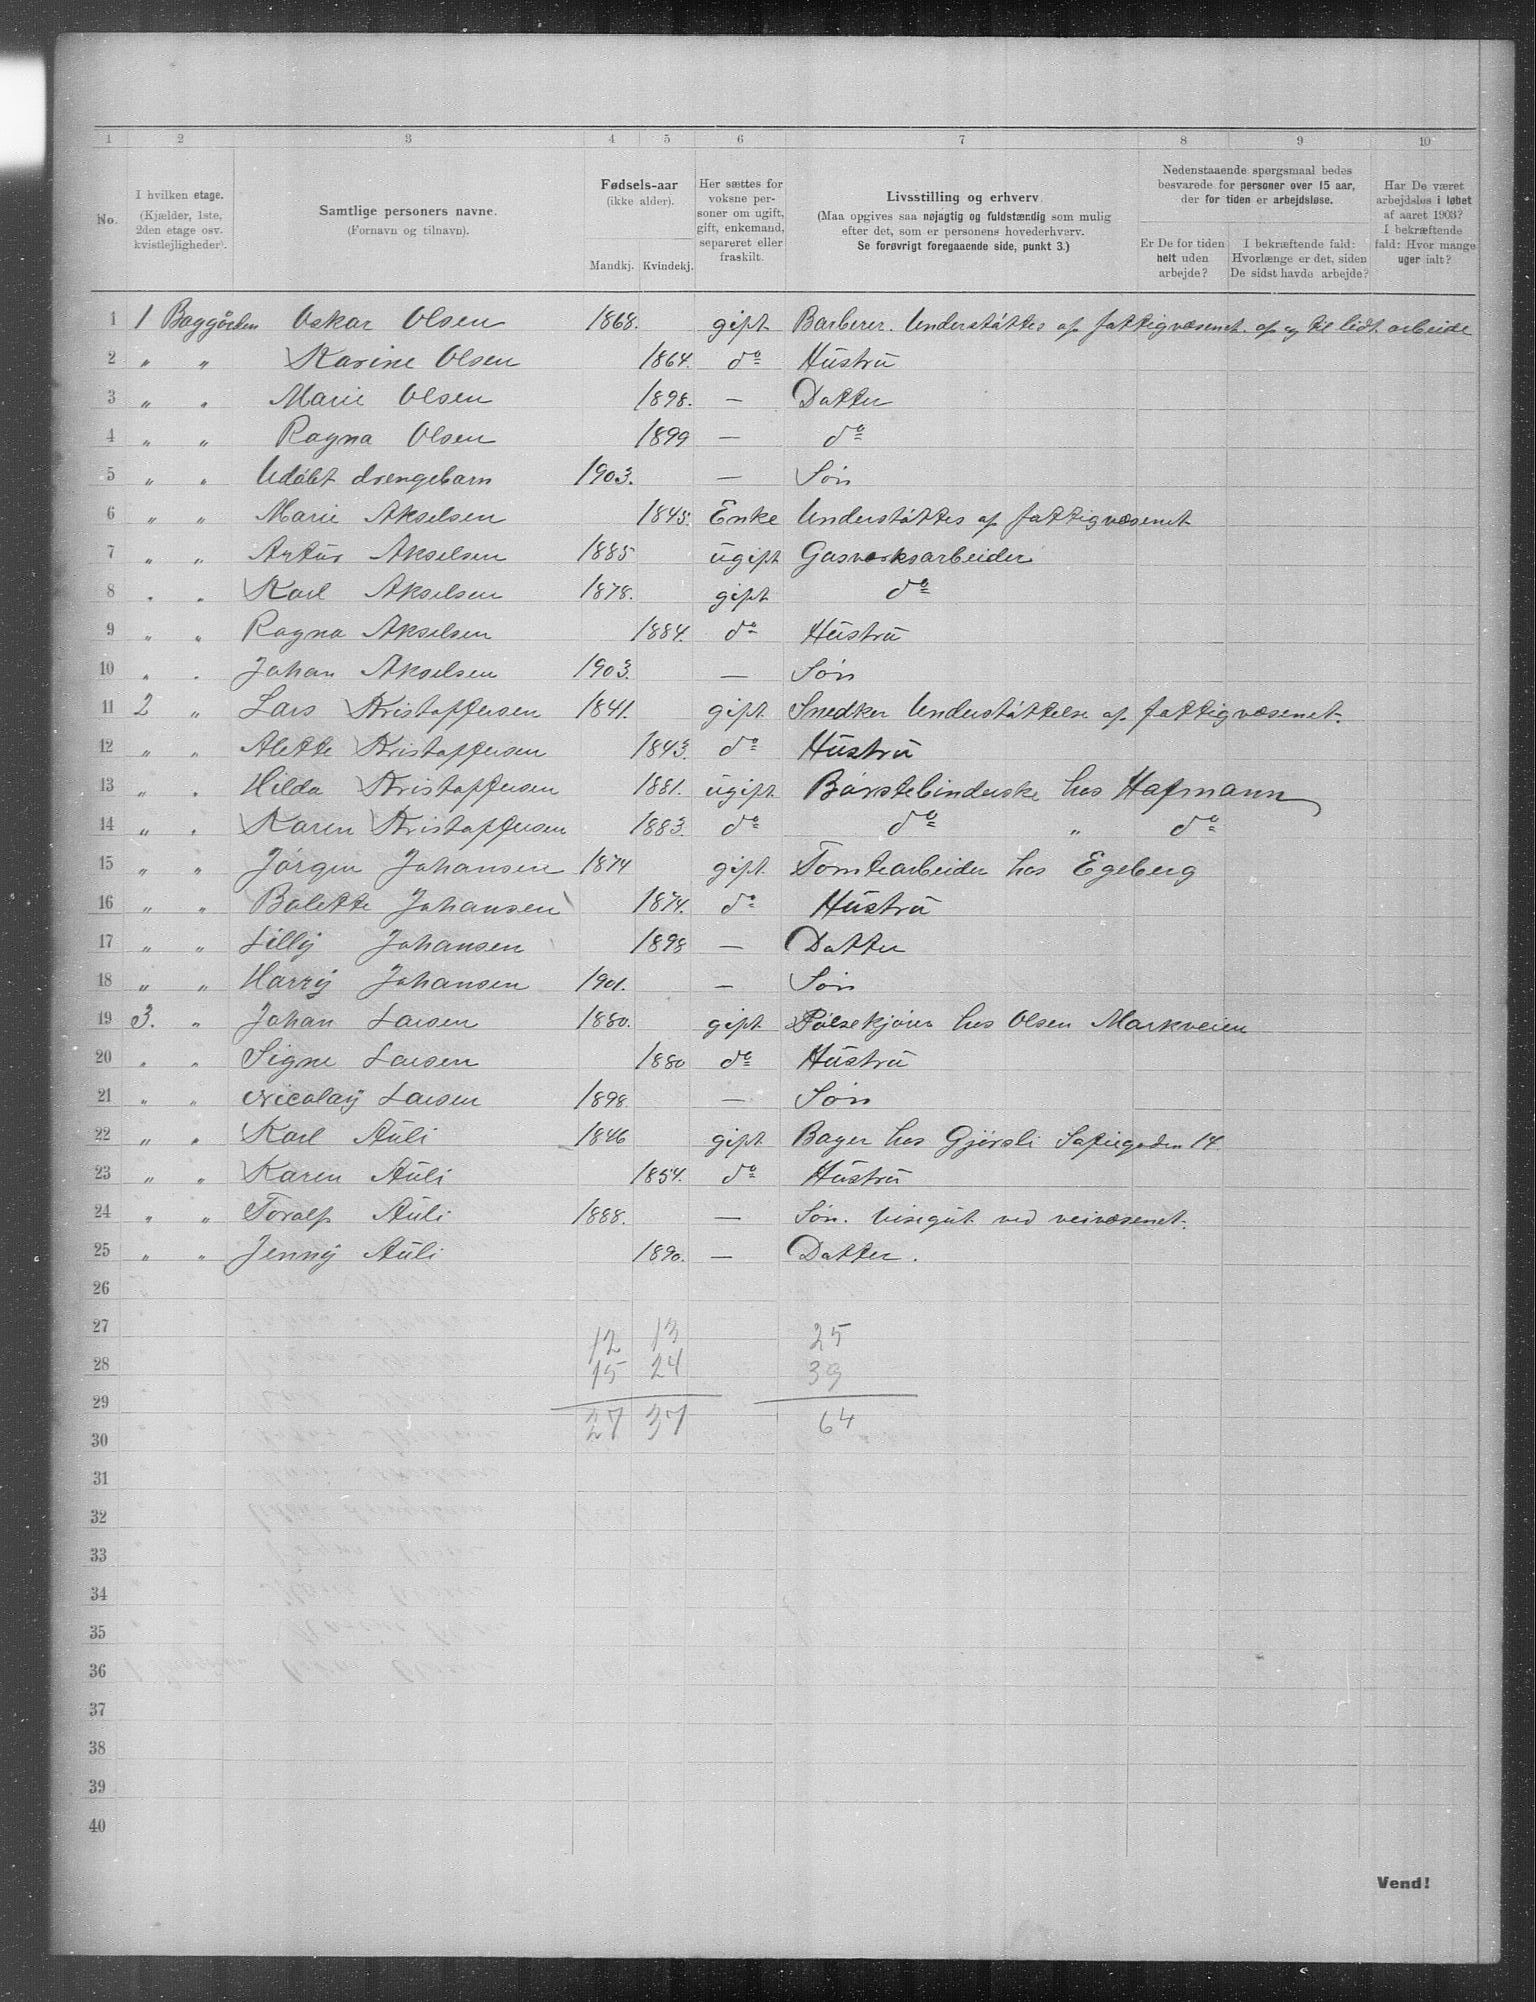 1 2 3 4 5 6 7 8 9 10
No.
I hvilken etage.
(Kjælder, 1ste,
2den etage osv.
kvistlejligheder).
Samtlige personers navne.
(Fornavn og tilnavn).
Fødsels-aar
(ikke alder).
Mandkj. Kvindekj.
Her sættes for
voksne per-
soner om ugift,
gift, enkemand,
separeret eller
fraskilt.
Livsstilling og erhverv
(Maa opgives saa nøjagtig og fuldstændig som mulig
efter det, som er personens hovederhverv.
Se forøvrigt foregaaende side, punkt 3.)
Nedenstaaende spørgsmaal bedes
besvarede for personer over 15 aar,
der for tiden er arbejdsløse.
Er De for tiden
helt uden
arbejde?
I bekræftende fald:
Hvorlænge er det, siden
De sidst havde arbejde?
Har De været
arbejdsløs i løbet
af aaret 1903?
I bekræftende
fald: Hvor mange
uger ialt?
1 1 Baggården Oskar Olsen 1868. gift Barberer. Understøttes af fattigvæsenet. af og til lidt arbeide
2 " " Karine Olsen 1864. do Hustru
3 " " Marie Olsen 1898. — Datter
4 " " Ragna Olsen 1899 — do
5 " " Udøbt drengebarn 1903. — Søn
6 " " Marie Akselsen 1845. Enke Understøttes af fattigvæsenet
7 " " Artur Akselsen 1885 ugift Gasværksarbeider
8 " " Karl Akselsen 1878. gift do
9 " " Ragna Akselsen 1884. do Hustru
10 " " Johan Akselsen 1903. — Søn
11 2 " Lars Kristoffersen 1841. gift Snedker Understøttelse af fattigvæsenet.
12 " " Alette Kristoffersen 1843. do Hustru
13 " " Hilda Kristoffersen 1881. ugift Børstebinderske hos Hofmann
14 " " Karen Kristoffersen 1883. do do " do
15 " " Jørgen Johansen 1874 gift Tomtearbeider hos Egeberg
16 " " Bolette Johansen 1874. do Hustru
17 " " Lilly Johansen 1898 — Datter
18 " " Harry Johansen 1901. — Søn
19 3. " Johan Larsen 1880. gift Pølsekjører hos Olsen Markveien
20 " " Signe Larsen 1880 do Hustru
21 " " Nicolay Larsen 1898. — Søn
22 " " Karl Auli 1846 gift Bager hos Gjørsli Sofiegaden 14.
23 " " Karen Auli 1854. do Hustru
24 " " Toralf Auli 1888. — Søn. Visergut ved veivæsenet.
25 " " Jenny Auli 1890. — Datter.
26
27 12 13 25
28 15 24 39
29 27 37 64
30
31
32
33
34
35
36
37
38
39
40
Vend!